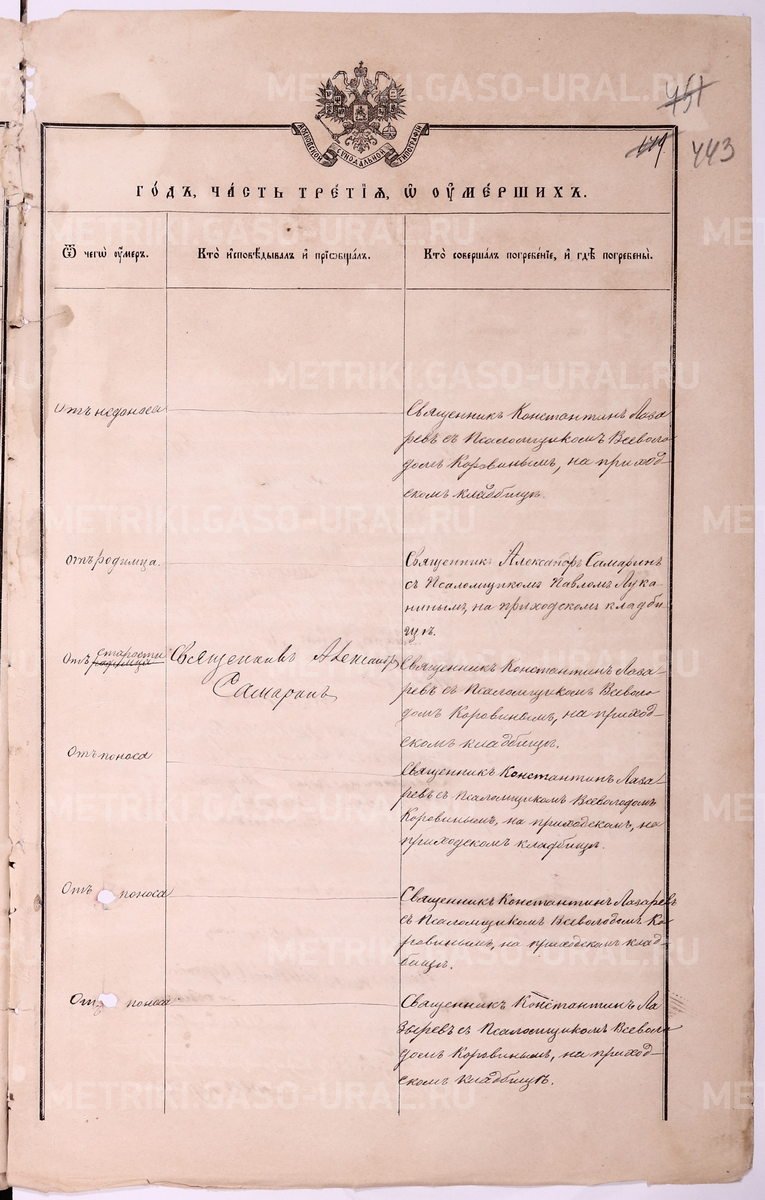 METRIKI.GASO-URAL.RU
451
419 443
МОСКОВСКОЙ СѴНОДАЛЬНОЙ ТИПОГРАФІИ
го́дъ, ча́сть тре́тїѧ, ѡ҆ ᲂу҆ме́ршихъ.
Ѿ чегѡ̀ ᲂу҆́меръ.
Кто̀ и҆сповѣ́дывалъ и҆ прїѻбща́лъ.
Кто̀ соверша́лъ погребе́нїе, и҆ гдѣ̀ погребены̀.
Отъ недоноса
Священникъ Константинъ Лаза
ревъ съ Псаломщикомъ Всеволо
домъ Коровинымъ, на приход-
скомъ кладбищѣ.
Отъ родимца.
Священникъ Александръ Самаринъ
съ Псаломщикомъ Павломъ Лука
нинымъ, на приходскомъ кладби
щѣ.
Отъ старости
родимца
Священникъ Александръ
Самаринъ
Священникъ Константинъ Лаза-
ревъ съ Псаломщикомъ Всеволо
домъ Коровинымъ, на приход-
скомъ кладбищѣ.
Отъ поноса
Священникъ Константинъ Лаза-
ревъ съ Псаломщикомъ Всеволодомъ
Коровинымъ, на приходскомъ, на
приходскомъ кладбищѣ.
Отъ поноса
Священникъ Константинъ Лазаревъ
съ Псаломщикомъ Всеволодомъ Ко-
ровинымъ, на приходскомъ клад-
бищѣ.
Отъ поноса
Священникъ Константинъ Ла
зыревъ съ Псаломщикомъ Всеволо
домъ Коровинымъ, на приход-
скомъ кладбищѣ.